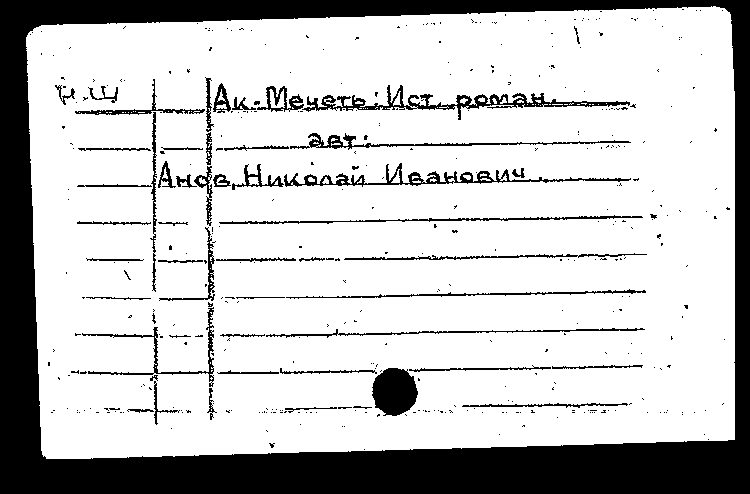 Ак-Мечеть: Ист. роман.
авт:
Анов, Николай Иванович.